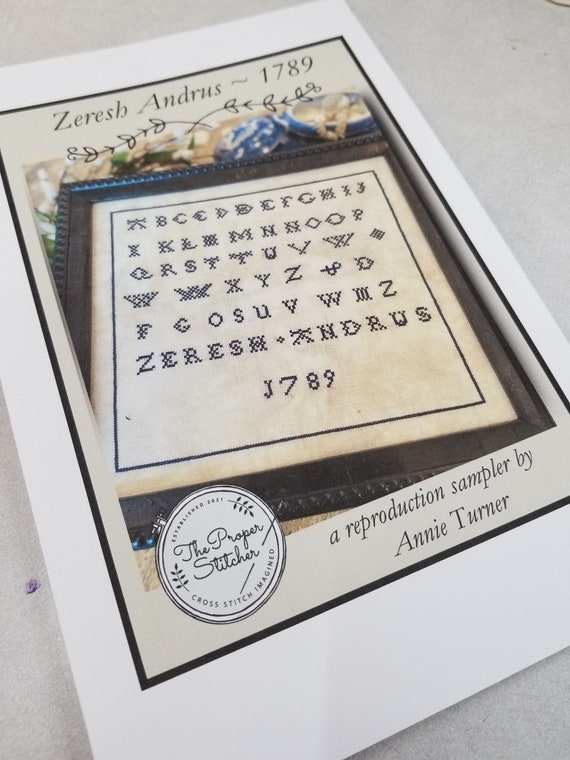 Zeresh Andrus ~ 1789
A B C D E F G H I J
I K L M M N N O O P
Q R S T T U V W
W W X Y Z & D
F G O S U V W M Z
ZERESH · ANDRUS
1789
ESTABLISHED 2021
The Proper
Stitcher
CROSS STITCH IMAGINED
a reproduction sampler by
Annie Turner